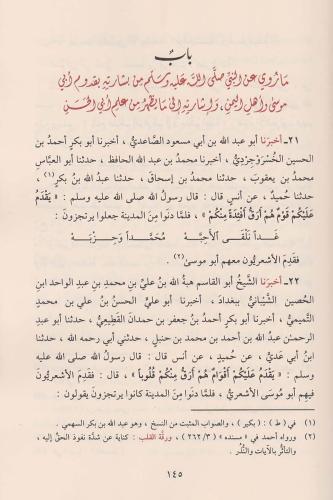 بابُ
ما رُوي عن النبيّ صلَّى اللهُ عَليهِ وَسلَّم مِن بشارتِهِ بقدومِ أبي
موسَى وأهلِ اليمنِ، وَإشارتِهِ إلى مَا يَظهرُ مِن علمِ أبي الحسَنِ
٢١ـ أخبرَنا أبو عبد الله بن أبي مسعود الصاعديُّ، أخبرنا أبو بكرٍ أحمدُ بن
الحسين الخُسْرَوْجِرْدِيُّ، أخبرنا محمدُ بن عبد الله الحافظ، حدثنا أبو العباسِ
محمدُ بن يعقوبَ، حدثنا محمدُ بن إسحاقَ، حدثنا عبد الله بن بكرٍ(١)،
حدثنا حُميدٌ، عن أنسٍ قال: قال رسولُ الله صلى الله عليه وسلم: «يَقْدُمُ
عَلَيْكُمْ قَوْمٌ هُمْ أَرَقُّ أَفْئِدَةً مِنْكُمْ»، فلمَّا دنَوا منَ المدينةِ جعلوا يرتجزونَ:
غَداً نَلْقَى الأَحِبَّهْ مُحَمَّداً وَحِزْبَهْ
فقدِمَ الأشعريُّونَ معهم أبو موسىٰ(٢).
٢٢ـ أخبرَنا الشَّيخُ أبو القاسمِ هبةُ الله بنُ محمدِ بن عبدِ الواحدِ ابن
الحُصين الشَّيْبانيُّ ببغدادَ، أخبرنا أبو عليٍّ الحسنُ بنُ عليِّ بن محمدٍ
التَّميميُّ، أخبرنا أبو بكرٍ أحمدُ بنُ جعفرِ بن حمدانَ القَطِيعيُّ، حدثنا أبو عبدِ
الرحمٰنِ عبدُ الله بن أحمدَ بن محمدِ بن حنبلٍ، حدثني أبي رحمه الله، حدثنا
ابنُ أبي عَدِيٍّ، عن حُميدٍ، عن أنسٍ قال: قال رسولُ الله صلى الله عليه
وسلم: «يَقْدَمُ عَلَيْكُمْ أَقْوَامٌ هُمْ أَرَقُّ مِنْكُمْ قُلُوباً»، قال: فقدِمَ الأشعريُّونَ
فيهم أبو مُوسَى الأشعريُّ، فلمَّا دنَوا منَ المدينةِ كانوا يرتجزونَ يقولون:
(١) في (ط): (بكير)، والصواب المثبت من النسخ، وهو عبد الله بن بكر السهمي.
(٢) ورواه أحمد في «مسنده» (٢٦٢/٣)، ورقَّة القلب: كناية عن شدَّة نفوذ الحقِّ إليه،
والتأثر بالآيات والنُّذُر.
١٤٥